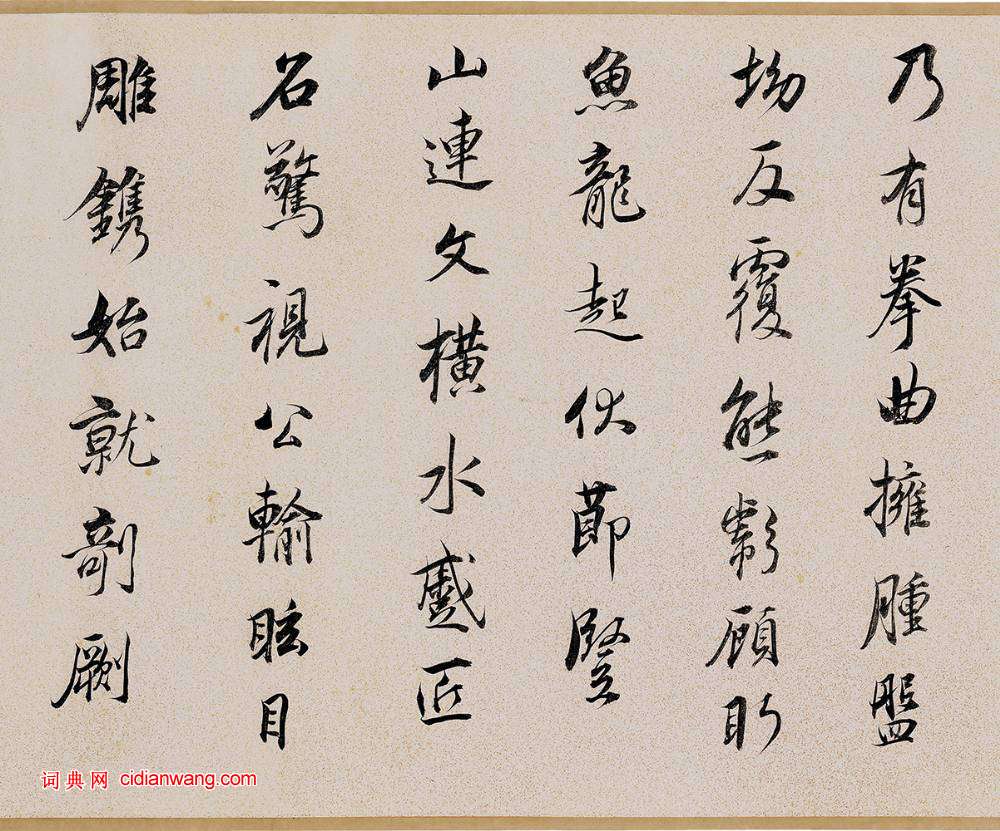 乃有拳曲擁腫盤
坳反覆熊彪顧盼
魚龍起伏節豎
山連文橫水蹙匠
石驚視公輸眩目
雕鐫始就剞劂
词典网 cidianwang.com